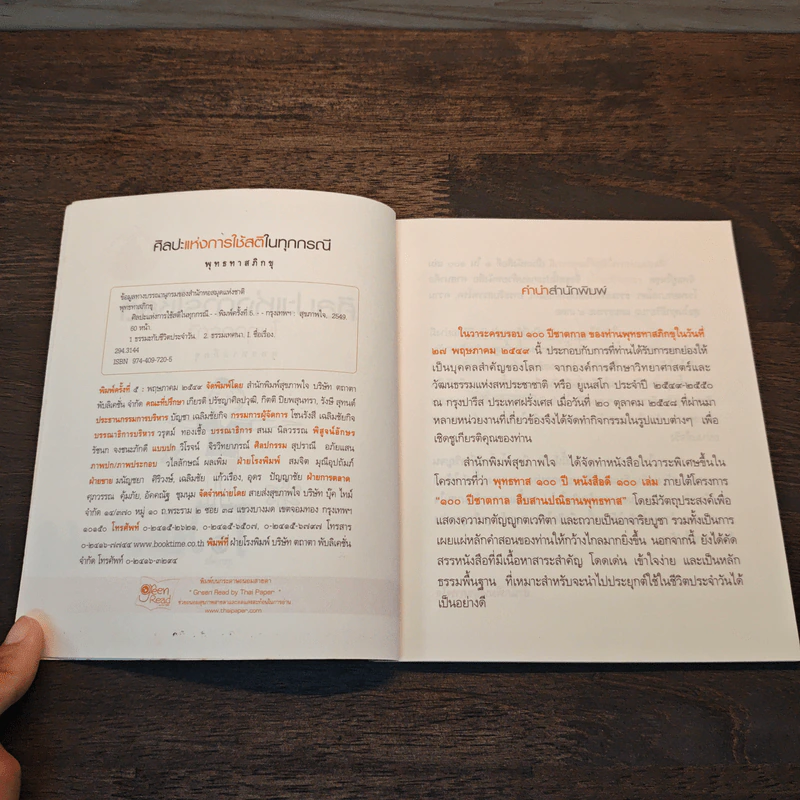 ศิลปะแห่งการใช้สติในทุกกรณี
พุทธทาสภิกขุ
ข้อมูลทางบรรณานุกรมของสำนักหอสมุดแห่งชาติ
พุทธทาสภิกขุ
ศิลปะแห่งการใช้สติในทุกกรณี. - - พิมพ์ครั้งที่ 5. - - กรุงเทพฯ : สุขภาพใจ, 2549.
60 หน้า.
1 ธรรมะกับชีวิตประจำวัน. 2. ธรรมเทศนา. I. ชื่อเรื่อง.
294.3144
ISBN 974-409-720-5
พิมพ์ครั้งที่ ๕ : พฤษภาคม ๒๕๔๙ จัดพิมพ์โดย สำนักพิมพ์สุขภาพใจ บริษัท ตถาตา
พับลิเคชั่น จำกัด คณะที่ปรึกษา เกียรติ ปรัชญาศิลปวุฒิ, กิตติ ปิยพสุนทรา, รังษี สุทนต์
ประธานกรรมการบริหาร บัญชา เฉลิมชัยกิจ กรรมการผู้จัดการ โชนรังสี เฉลิมชัยกิจ
บรรณาธิการบริหาร วรุตม์ ทองเชื้อ บรรณาธิการ สนม นิลวรรณ พิสูจน์อักษร
รัชนก จงชนะภักดี แบบปก วิโรจน์ จิรวิทยาภรณ์ ศิลปกรรม สุปราณี อภัยแสน
ภาพปก/ภาพประกอบ วไลลักษณ์ ผลเพิ่ม ฝ่ายโรงพิมพ์ สมจิต มุณีอุปถัมภ์
ฝ่ายขาย มนัญชยา ศิริวงษ์, เฉลิมชัย แก้วเรือง, อุดร ปัญญาชัย ฝ่ายการตลาด
ศุภวรรณ คุ้มภัย, อัคคณัฐ ชุมนุม จัดจำหน่ายโดย สายส่งสุขภาพใจ บริษัท บุ๊ค ไทม์
จำกัด ๑๔/๓๗๐ หมู่ ๑๐ ถ.พระราม ๒ ซอย ๓๘ แขวงบางมด เขตจอมทอง กรุงเทพฯ
๑๐๑๕๐ โทรศัพท์ ๐-๒๔๑๕-๒๖๒๑, ๐-๒๔๑๕-๖๕๐๗, ๐-๒๔๑๕-๖๗๙๗ โทรสาร
๐-๒๔๑๖-๗๗๔๔ www.booktime.co.th พิมพ์ที่ ฝ่ายโรงพิมพ์ บริษัท ตถาตา พับลิเคชั่น
จำกัด โทรศัพท์ ๐-๒๔๑๖-๓๒๙๔
green
Read
พิมพ์บนกระดาษถนอมสายตา
" Green Read by Thai Paper "
www.thaipaper.com
คำนำสำนักพิมพ์
ในวาระครบรอบ ๑๐๐ ปีชาตกาล ของท่านพุทธทาสภิกขุในวันที่
๒๗ พฤษภาคม ๒๕๔๙ นี้ ประกอบกับการที่ท่านได้รับการยกย่องให้
เป็นบุคคลสำคัญของโลก จากองค์การศึกษาวิทยาศาสตร์และ
วัฒนธรรมแห่งสหประชาชาติ หรือ ยูเนสโก ประจำปี ๒๕๔๙-๒๕๕๐
ณ กรุงปารีส ประเทศฝรั่งเศส เมื่อวันที่ ๒๐ ตุลาคม ๒๕๔๘ ที่ผ่านมา
หลายหน่วยงานที่เกี่ยวข้องจึงได้จัดทำกิจกรรมในรูปแบบต่างๆ เพื่อ
เชิดชูเกียรติคุณของท่าน
สำนักพิมพ์สุขภาพใจ ได้จัดทำหนังสือในวาระพิเศษขึ้นใน
โครงการที่ว่า พุทธทาส ๑๐๐ ปี หนังสือดี ๑๐๐ เล่ม ภายใต้โครงการ
"๑๐๐ ปีชาตกาล สืบสานปณิธานพุทธทาส" โดยมีวัตถุประสงค์เพื่อ
แสดงความกตัญญูกตเวทิตา และถวายเป็นอาจาริยบูชา รวมทั้งเป็นการ
เผยแผ่หลักคำสอนของท่านให้กว้างไกลมากยิ่งขึ้น นอกจากนี้ ยังได้คัด
สรรหนังสือที่มีเนื้อหาสาระสำคัญ โดดเด่น เข้าใจง่าย และเป็นหลัก
ธรรมพื้นฐาน ที่เหมาะสำหรับจะนำไปประยุกต์ใช้ในชีวิตประจำวันได้
เป็นอย่างดี